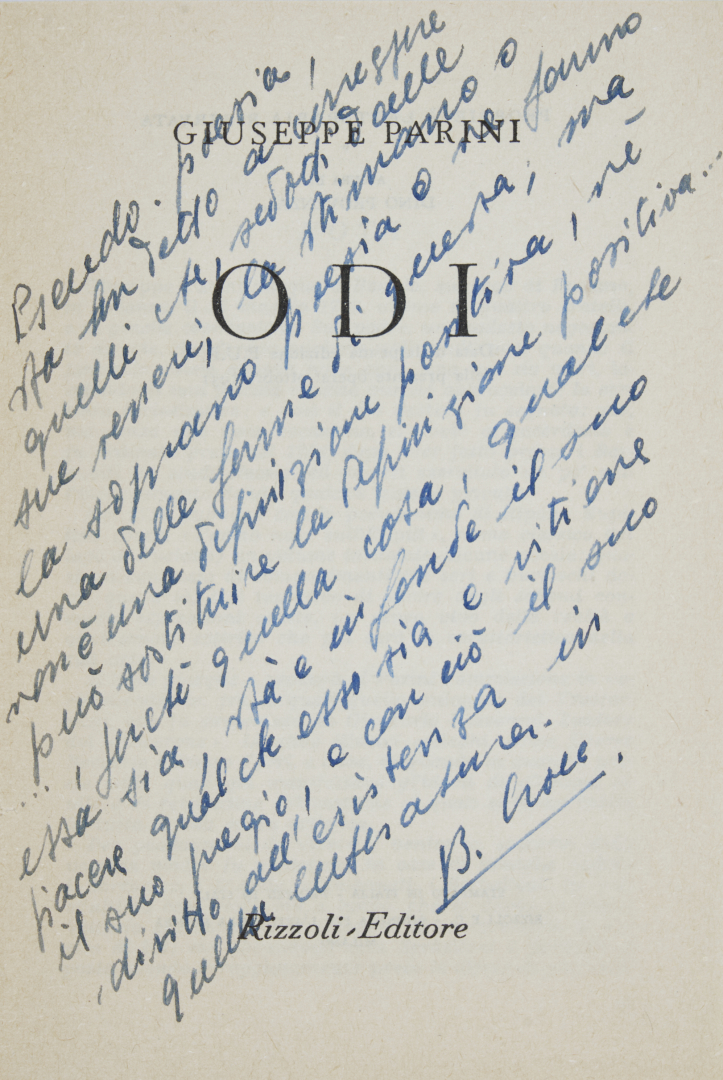 GIUSEPPE PARINI
ODI
Pseudo-poesia,
sta ben detto a correggere
quelli che, sedotti dalle
sue veneri, la stimano o
la sognano poesia o ne fanno
una delle forme di questa, ma
non è una definizione positiva, nè
può sostituire la definizione positiva...
..., perché quella cosa, qualche
essa sia, dà e infonde il suo
piacere qual che esso sia e ritiene
il suo pregio, e con ciò il suo
diritto all'esistenza in
quella letteratura.
B. Croce.
Rizzoli-Editore